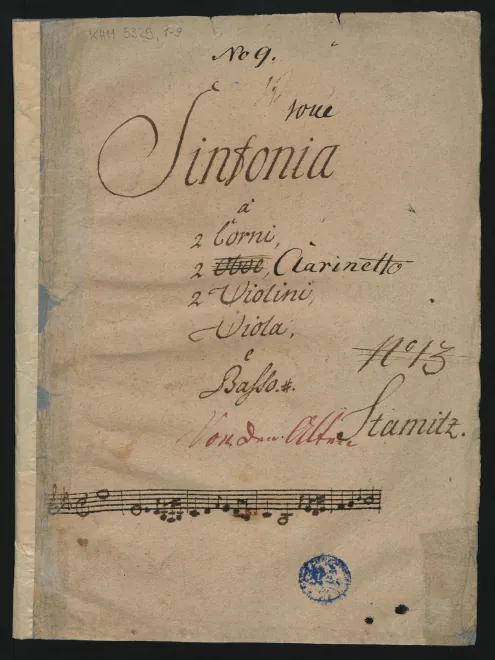 KHM 5325, 1-9
No 9.
Sinfonia
à
2 Corni,
2 Oboe, Clarinetto
2 Violini,
Viola,
e
Basso.
No 13
Von den Alten Stamitz.